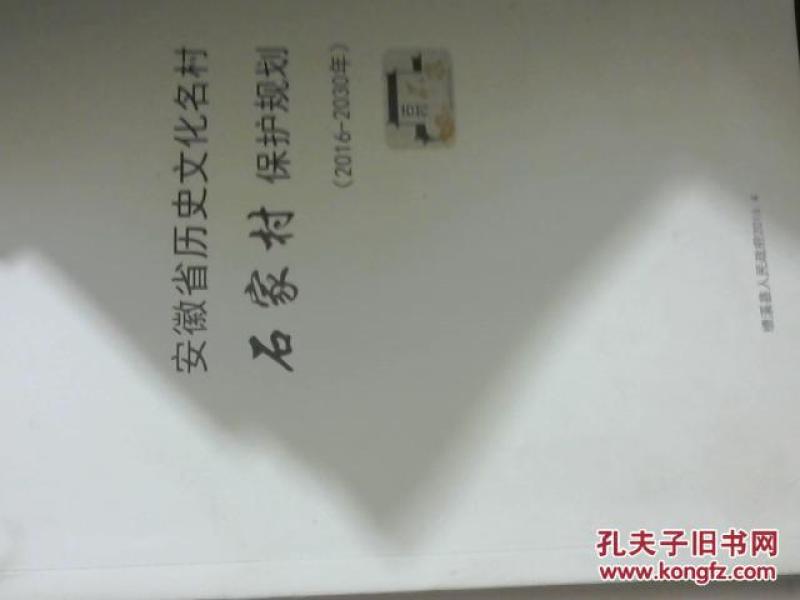 安徽省历史文化名村
石家村 保护规划
（2016-2030年）
绩溪县人民政府2015.4
孔夫子旧书网
www.kongfz.com